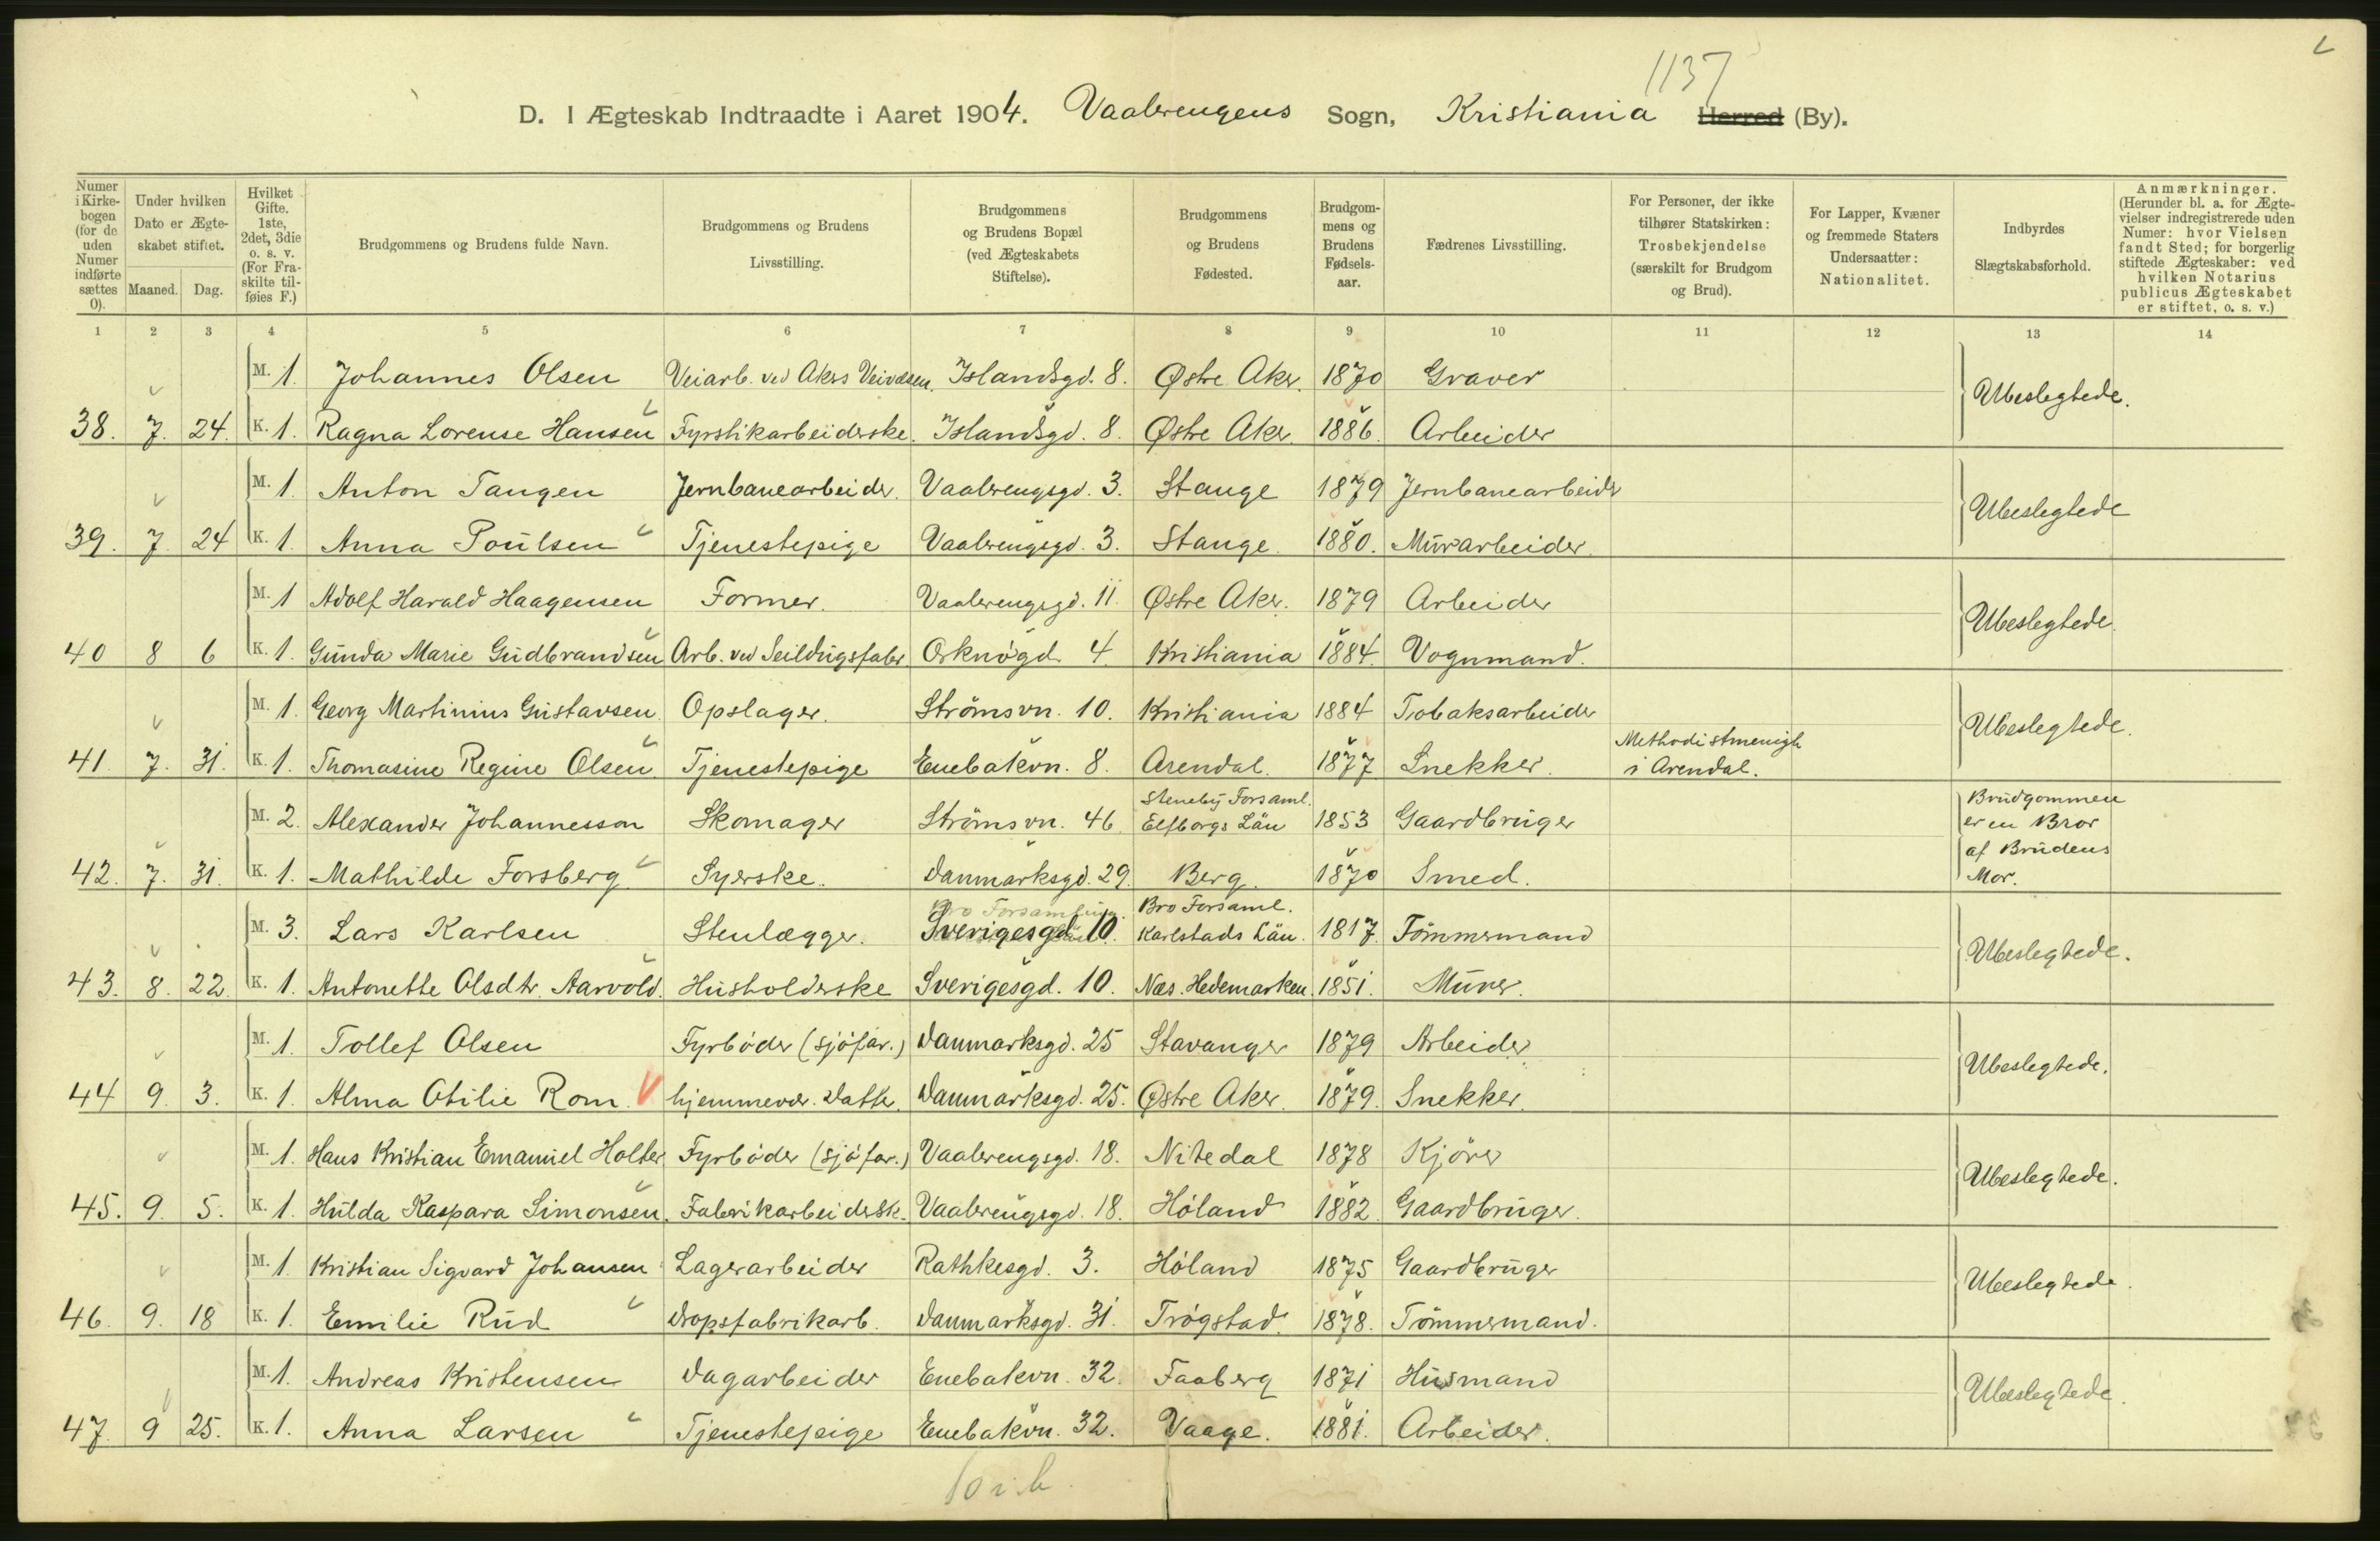 1137
D. I Ægteskab Indtraadte i Aaret 1904. Vaalerengens Sogn, Kristiania Herred (By).
Numer i Kirkebogen (for de uden Numer indførte sættes 0).
Under hvilken Dato er Ægteskabet stiftet.
Maaned. Dag.
Hvilket Gifte. 1ste, 2det, 3die o. s. v. (For Fraskilte tilføies F.)
Brudgommens og Brudens fulde Navn.
Brudgommens og Brudens Livsstilling.
Brudgommens og Brudens Bopæl (ved Ægteskabets Stiftelse).
Brudgommens og Brudens Fødested.
Brudgommens og Brudens Fødselsaar.
Fædrenes Livsstilling.
For Personer, der ikke tilhører Statskirken: Trosbekjendelse (særskilt for Brudgom og Brud).
For Lapper, Kvæner og fremmede Staters Undersaatter: Nationalitet.
Indbyrdes Slægtskabsforhold.
Anmærkninger. (Herunder bl. a. for Ægtevielser indregistrerede uden Numer: hvor Vielsen fandt Sted; for borgerlig stiftede Ægteskaber: ved hvilken Notarius publicus Ægteskabet er stiftet, o. s. v.)
1 2 3 4 5 6 7 8 9 10 11 12 13 14
M. 1. Johannes Olsen Veiarb. ved Akers Veivæsen. Islandsgd. 8. Østre Aker. 1870 Graver Ubeslegtede.
38. 7. 24. K. 1. Ragna Lorense Hansen Fyrstikarbeiderske. Islandsgd. 8. Østre Aker. 1886. Arbeider
M. 1. Anton Tangen Jernbanearbeider. Vaalerengsgd. 3. Stange 1879 Jernbanearbeider Ubeslegtede
39. 7. 24 K. 1. Anna Poulsen Tjenestepige Vaalerengsgd. 3. Stange. 1880. Murarbeider.
M. 1 Adolf Harald Haagensen Former. Vaalerengsgd. 11. Østre Aker. 1879 Arbeider Ubeslegtede.
40 8 6 K. 1. Gunda Marie Gudbrandsen Arb. ved Seildugsfabr. Orknøgd. 4. Kristiania 1884. Vognmand.
M. 1. Georg Martinius Gustavsen. Opslager. Strömsvn. 10. Kristiania 1884 Tobaksarbeider Ubeslegtede.
41. 7. 31. K. 1. Thomasine Regine Olsen Tjenestepige Enebakvn. 8. Arendal. 1877 Snekker. Methodistmenigh. i Arendal.
M. 2. Alexander Johannesson Skomager Strömsvn. 46. Steneby Forsaml. Elfborgs Län 1853 Gaardbruger Brudgommen er en Bror af Brudens Mor.
42. 7. 31. K. 1. Mathilde Forsberg. Syerske. Danmarksgd. 29. Berg. 1870 Smed.
M. 3. Lars Karlsen Stenlægger. Sverigesgd. 10. Bro Forsaml. Karlstads Län. 1817. Tömmermand Ubeslegtede.
43. 8. 22. K. 1. Antonette Olsdtr. Aarvold. Husholderske Sverigesgd. 10. Næs. Hedemarken. 1851. Murer.
M. 1. Tollef Olsen Fyrböder (sjöfar.) Danmarksgd. 25 Stavanger 1879 Arbeider Ubeslegtede.
44 9. 3. K. 1. Alma Otilie Rom. hjemmevær. Datter. Danmarksgd. 25. Østre Aker. 1879. Snekker.
M. 1. Hans Kristian Emanuel Holter Fyrböder (sjöfar.) Vaalerengsgd. 18. Nitedal 1878 Kjörer Ubeslegtede.
45. 9. 5. K. 1. Hulda Kaspara Simonsen. Fabrikarbeidersk. Vaalerengsgd. 18. Höland 1882. Gaardbruger.
M. 1. Kristian Sigvard Johansen Lagerarbeider Rathkesgd. 3. Höland 1875 Gaardbruger Ubeslegtede.
46. 9. 18 K. 1. Emilie Rud Dropsfabrikarb. Danmarksgd. 31. Trögstad. 1878. Tömmermand.
M. 1. Andreas Kristensen Dagarbeider Enebakvn. 32. Faaberg 1871 Husmand Ubeslegtede.
47. 9 25. K. 1. Anna Larsen Tjenestepige Enebakvn. 32. Vaage. 1881. Arbeider.